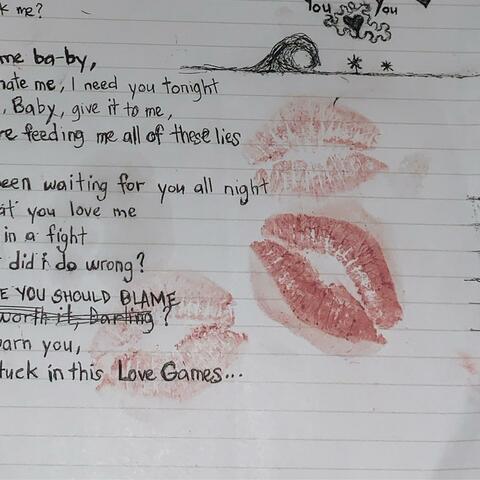 me?
You You
me ba-by,
hate me, I need you tonight
, Baby, give it to me,
re feeding me all of these lies
een waiting for you all night
at you love me
in a fight
did i do wrong?
E YOU SHOULD BLAME
worth it, Darling ?
warn you,
tuck in this Love Games...